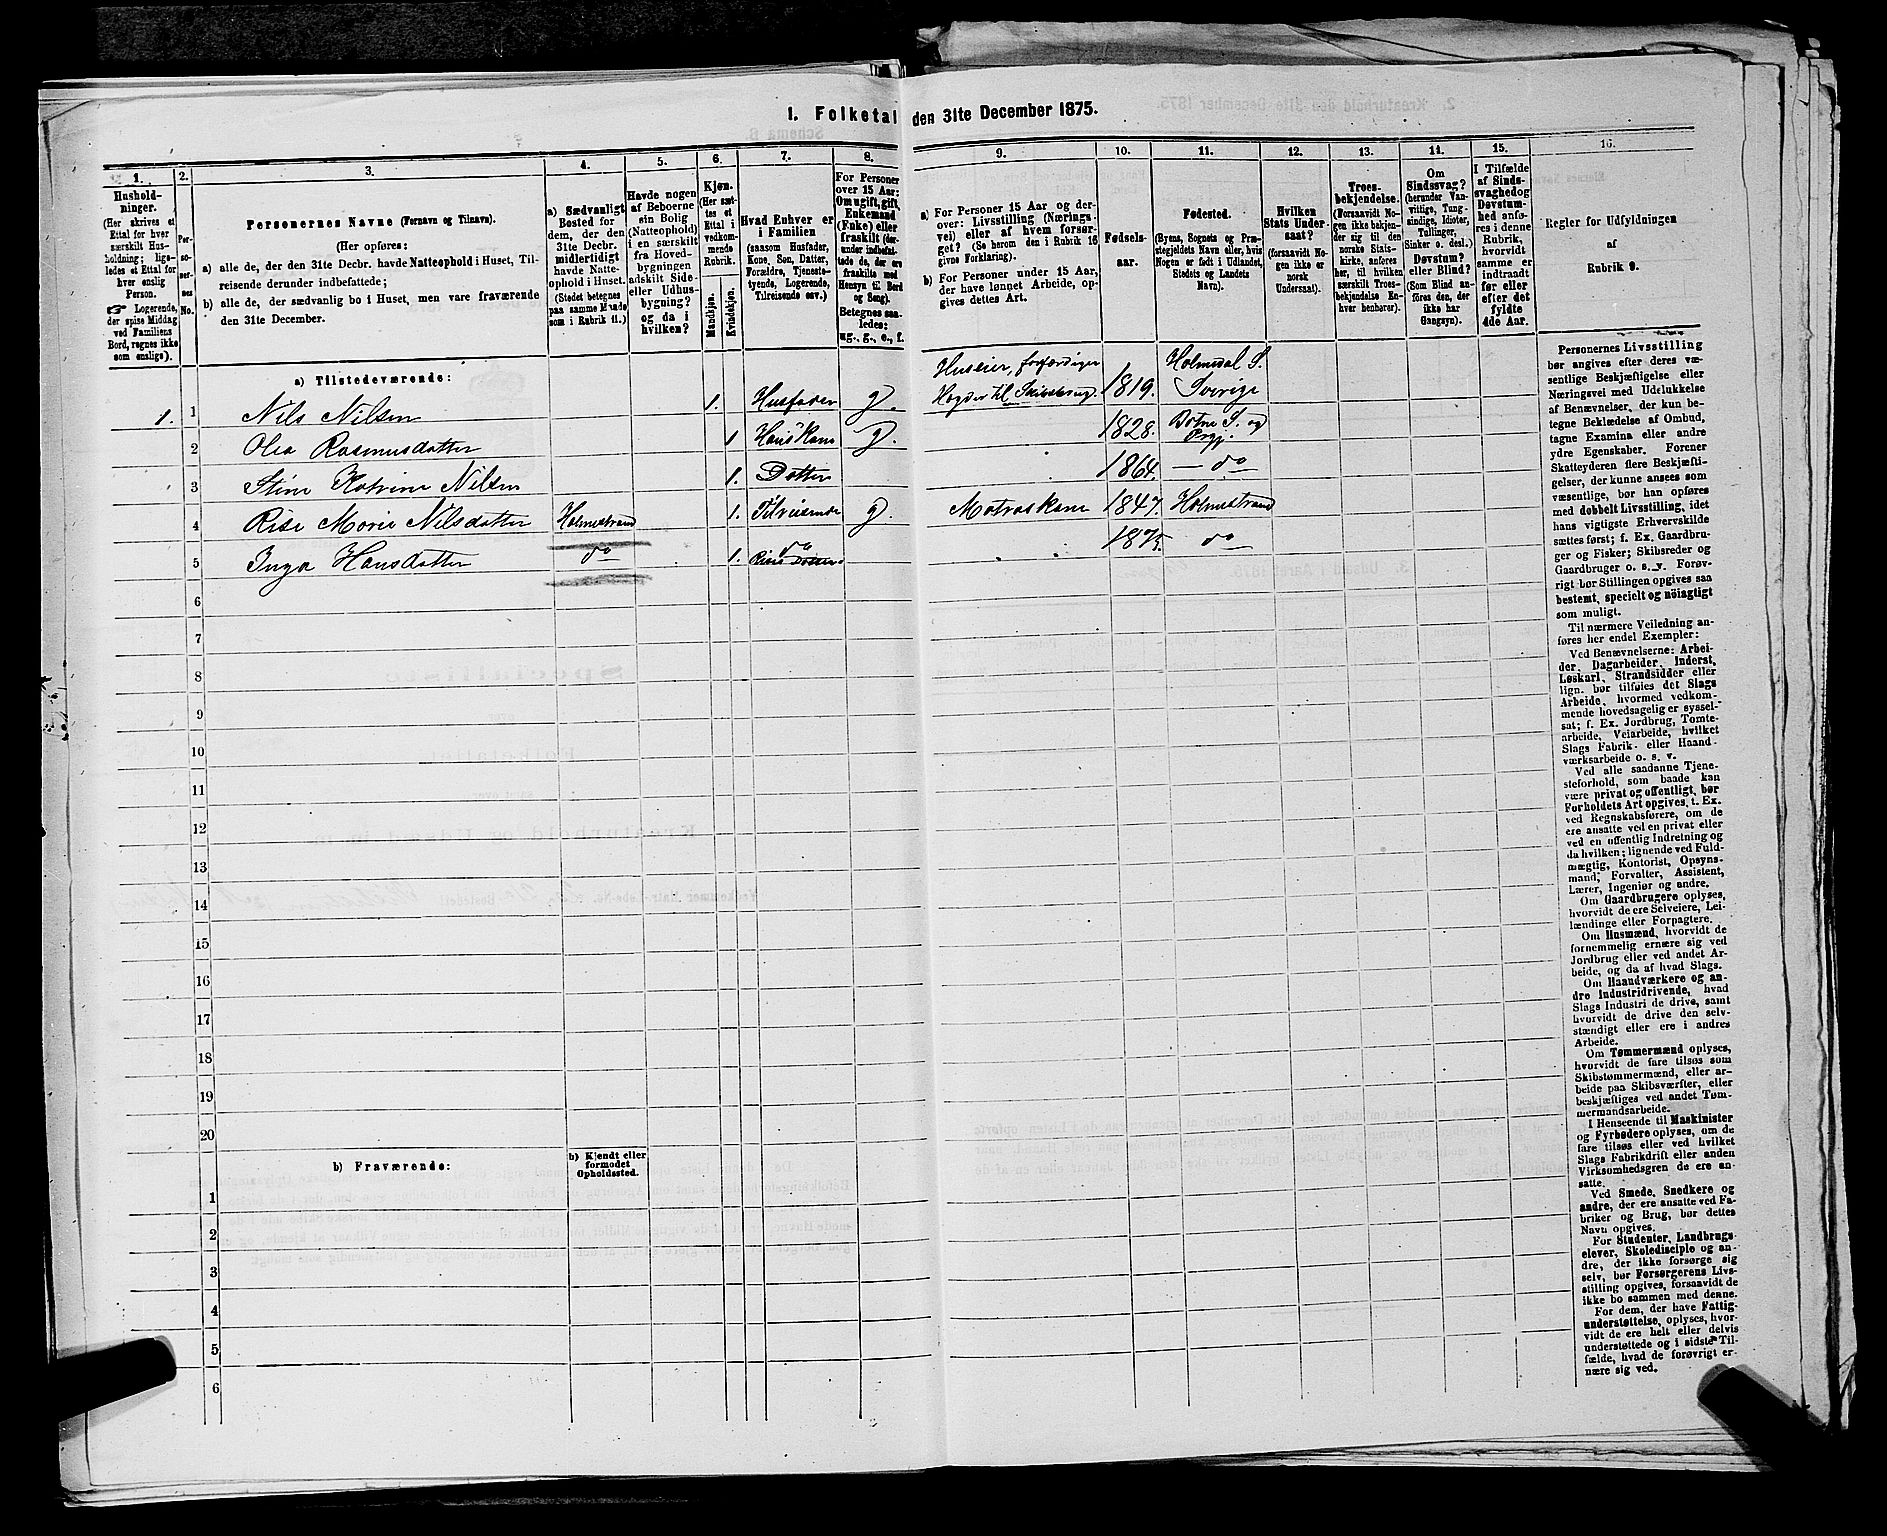 1. Folketal den 31te December 1875.
1. 2. 3. 4. 5. 6. 7. 8. 9. 10. 11. 12. 13. 14. 15. 16.
Hushold-
ninger.
(Her skrives et
Ettal for hver
særskilt Hus-
holdning; lige-
ledes et Ettal for
hver enslig
Person.
☞ Logerende,
der spise Middag
ved Familiens
Bord, regnes ikke
som enslige).
Per-
so-
ner-
nes
No.
Personernes Navne (Fornavn og Tilnavn).
(Her opføres:
a) alle de, der den 31te Decbr. havde Natteophold i Huset, Til-
reisende derunder indbefattede;
b) alle de, der sædvanlig bo i Huset, men vare fraværende
den 31te December.
a) Sædvanligt
Bosted for
dem, der den
31te Decbr.
midlertidigt
havde Natte-
ophold i Huset.
(Stedet betegnes
paa samme Maade
som i Rubrik 11.)
Havde nogen
af Beboerne
sin Bolig
(Natteophold)
i en særskilt
fra Hoved-
bygningen
adskilt Side-
eller Udhus-
bygning?
og da i
hvilken?
Kjøn.
(Her sæt-
tes et
Ettal i
vedkom-
mende
Rubrik.
Mandkjøn.
Kvindekjøn.
Hvad Enhver er
i Familien
(saasom Husfader,
Kone, Søn, Datter,
Forældre, Tjeneste-
tyende, Logerende,
Tilreisende osv.)
For Personer
over 15 Aar:
Om ugift, gift,
Enkemand
(Enke) eller
fraskilt (der-
under indbefat-
tede de, der ere
fraskilte med
Hensyn til Bord
og Seng).
Betegnes saa-
ledes:
ug., g., e., f.
a) For Personer 15 Aar og der-
over: Livsstilling (Nærings-
vei) eller af hvem forsør-
get? (Se herom den i Rubrik 16
givne Forklaring).
b) For Personer under 15 Aar,
der have lønnet Arbeide, op-
gives dettes Art.
Fødsels-
aar.
Fødested.
(Byens, Sognets og Præ-
stegjeldets Navn eller, hvis
Nogen er født i Udlandet,
Stedets og Landets
Navn).
Hvilken
Stats Under-
saat?
(forsaavidt No-
gen ikke er
norsk
Undersaat).
Troes-
bekjendelse.
(Forsaavidt No-
gen ikke bekjen-
der sig til den
norske Stats-
kirke, anføres
her, til hvilken
særskilt Troes-
bekjendelse En-
hver henhører).
Om
Sindssvag?
(herunder Van-
vittige, Tung-
sindige, Idioter,
Tullinger,
Sinker o. desl.)
Døvstum?
eller Blind?
(Som Blind an-
føres den, der
ikke har
Gangsyn).
I Tilfælde
af Sinds-
svaghed og
Døvstum-
hed anfø-
res i denne
Rubrik,
hvorvidt
samme er
indtraadt
før eller
efter det
fyldte
4de Aar.
Regler for Udfyldningen
af
Rubrik 9.
a) Tilstedeværende:
1. 1 Nils Nilsen 1. Husfader g. Huseier, forfærdiger Høgder til Skibsbrug. 1819. Holmedal S. Sverige
2 Olea Rasmusdatter 1 Hans Kone g. 1828. Botne S. og Prgj.
3 Stine Katrine Nilsen 1. Datter 1864. — do
4 Rise Marie Nilsdatter Holmestrand 1. Tilreisende g. Matroskone 1847. Holmestrand
5 Inga Hansdatter do 1. do Rises Datter 1875. do
6
7
8
9
10
11
12
13
14
15
16
17
18
19
20
b) Fraværende:
b) Kjendt eller
formodet
Opholdssted.
1
2
3
4
5
6
Personernes Livsstilling
bør angives efter deres væ-
sentlige Beskjæftigelse eller
Næringsvei med Udelukkelse
af Benævnelser, der kun be-
tegne Beklædelse af Ombud,
tagne Examina eller andre
ydre Egenskaber. Forener
Skatteyderen flere Beskjæfti-
gelser, der kunne ansees som
væsentlige, bør han opføres
med dobbelt Livsstilling, idet
hans vigtigste Erhvervskilde
sættes først; f. Ex. Gaardbru-
ger og Fisker; Skibsreder og
Gaardbruger o. s. v. Forøv-
rigt bør Stillingen opgives saa
bestemt, specielt og nøiagtigt
som muligt.
Til nærmere Veiledning an-
føres her endel Exempler:
Ved Benævnelserne: Arbei-
der, Dagarbeider, Inderst,
Løskarl, Strandsidder eller
lign. bør tilføies det Slags
Arbeide, hvormed vedkom-
mende hovedsagelig er syssel-
sat; f. Ex. Jordbrug, Tomte-
arbeide, Veiarbeide, hvilket
Slags Fabrik- eller Haand-
værksarbeide o. s. v.
Ved alle saadanne Tjene-
steforhold, som baade kan
være privat og offentligt, bør
Forholdets Art opgives, t. Ex.
ved Regnskabsførere, om de
ere ansatte ved en privat eller
ved en offentlig Indretning og
da hvilken; lignende ved Fuld-
mægtig, Kontorist, Opsyns-
mand, Forvalter, Assistent,
Lærer, Ingeniør og andre.
Om Gaardbrugere oplyses,
hvorvidt de ere Selveiere, Lei-
lændinge eller Forpagtere.
Om Husmænd, hvorvidt de
fornemmelig ernære sig ved
Jordbrug eller ved andet Ar-
beide, og da af hvad Slags.
Om Haandværkere og an-
dre Industridrivende, hvad
Slags Industri de drive, samt
hvorvidt de drive den selv-
stændigt eller ere i andres
Arbeide.
Om Tømmermænd oplyses,
hvorvidt de fare tilsøs som
Skibstømmermænd, eller ar-
beide paa Skibsværfter, eller
beskjæftiges ved andet Tøm-
mermandsarbeide.
I Henseende til Maskinister
og Fyrbødere oplyses, om de
fare tilsøs eller ved hvilket
Slags Fabrikdrift eller anden
Virksomhedsgren de ere an-
satte.
Ved Smede, Snedkere og
andre, der ere ansatte ved Fa-
briker og Brug, bør dettes
Navn opgives.
For Studenter, Landbrugs-
elever, Skoledisciple og an-
dre, der ikke forsørge sig
selv, bør Forsørgerens Livs-
stilling opgives, forsaavidt de
ikke bo sammen med denne.
For dem, der have Fattig-
understøttelse, oplyses, hvor-
vidt de ere helt eller delvis
understøttede og i sidste Til-
fælde, hvad de forøvrigt er-
nære sig ved.